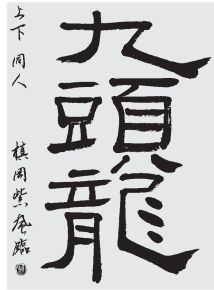 九頭龍
上下 同人 槙岡紫風臨